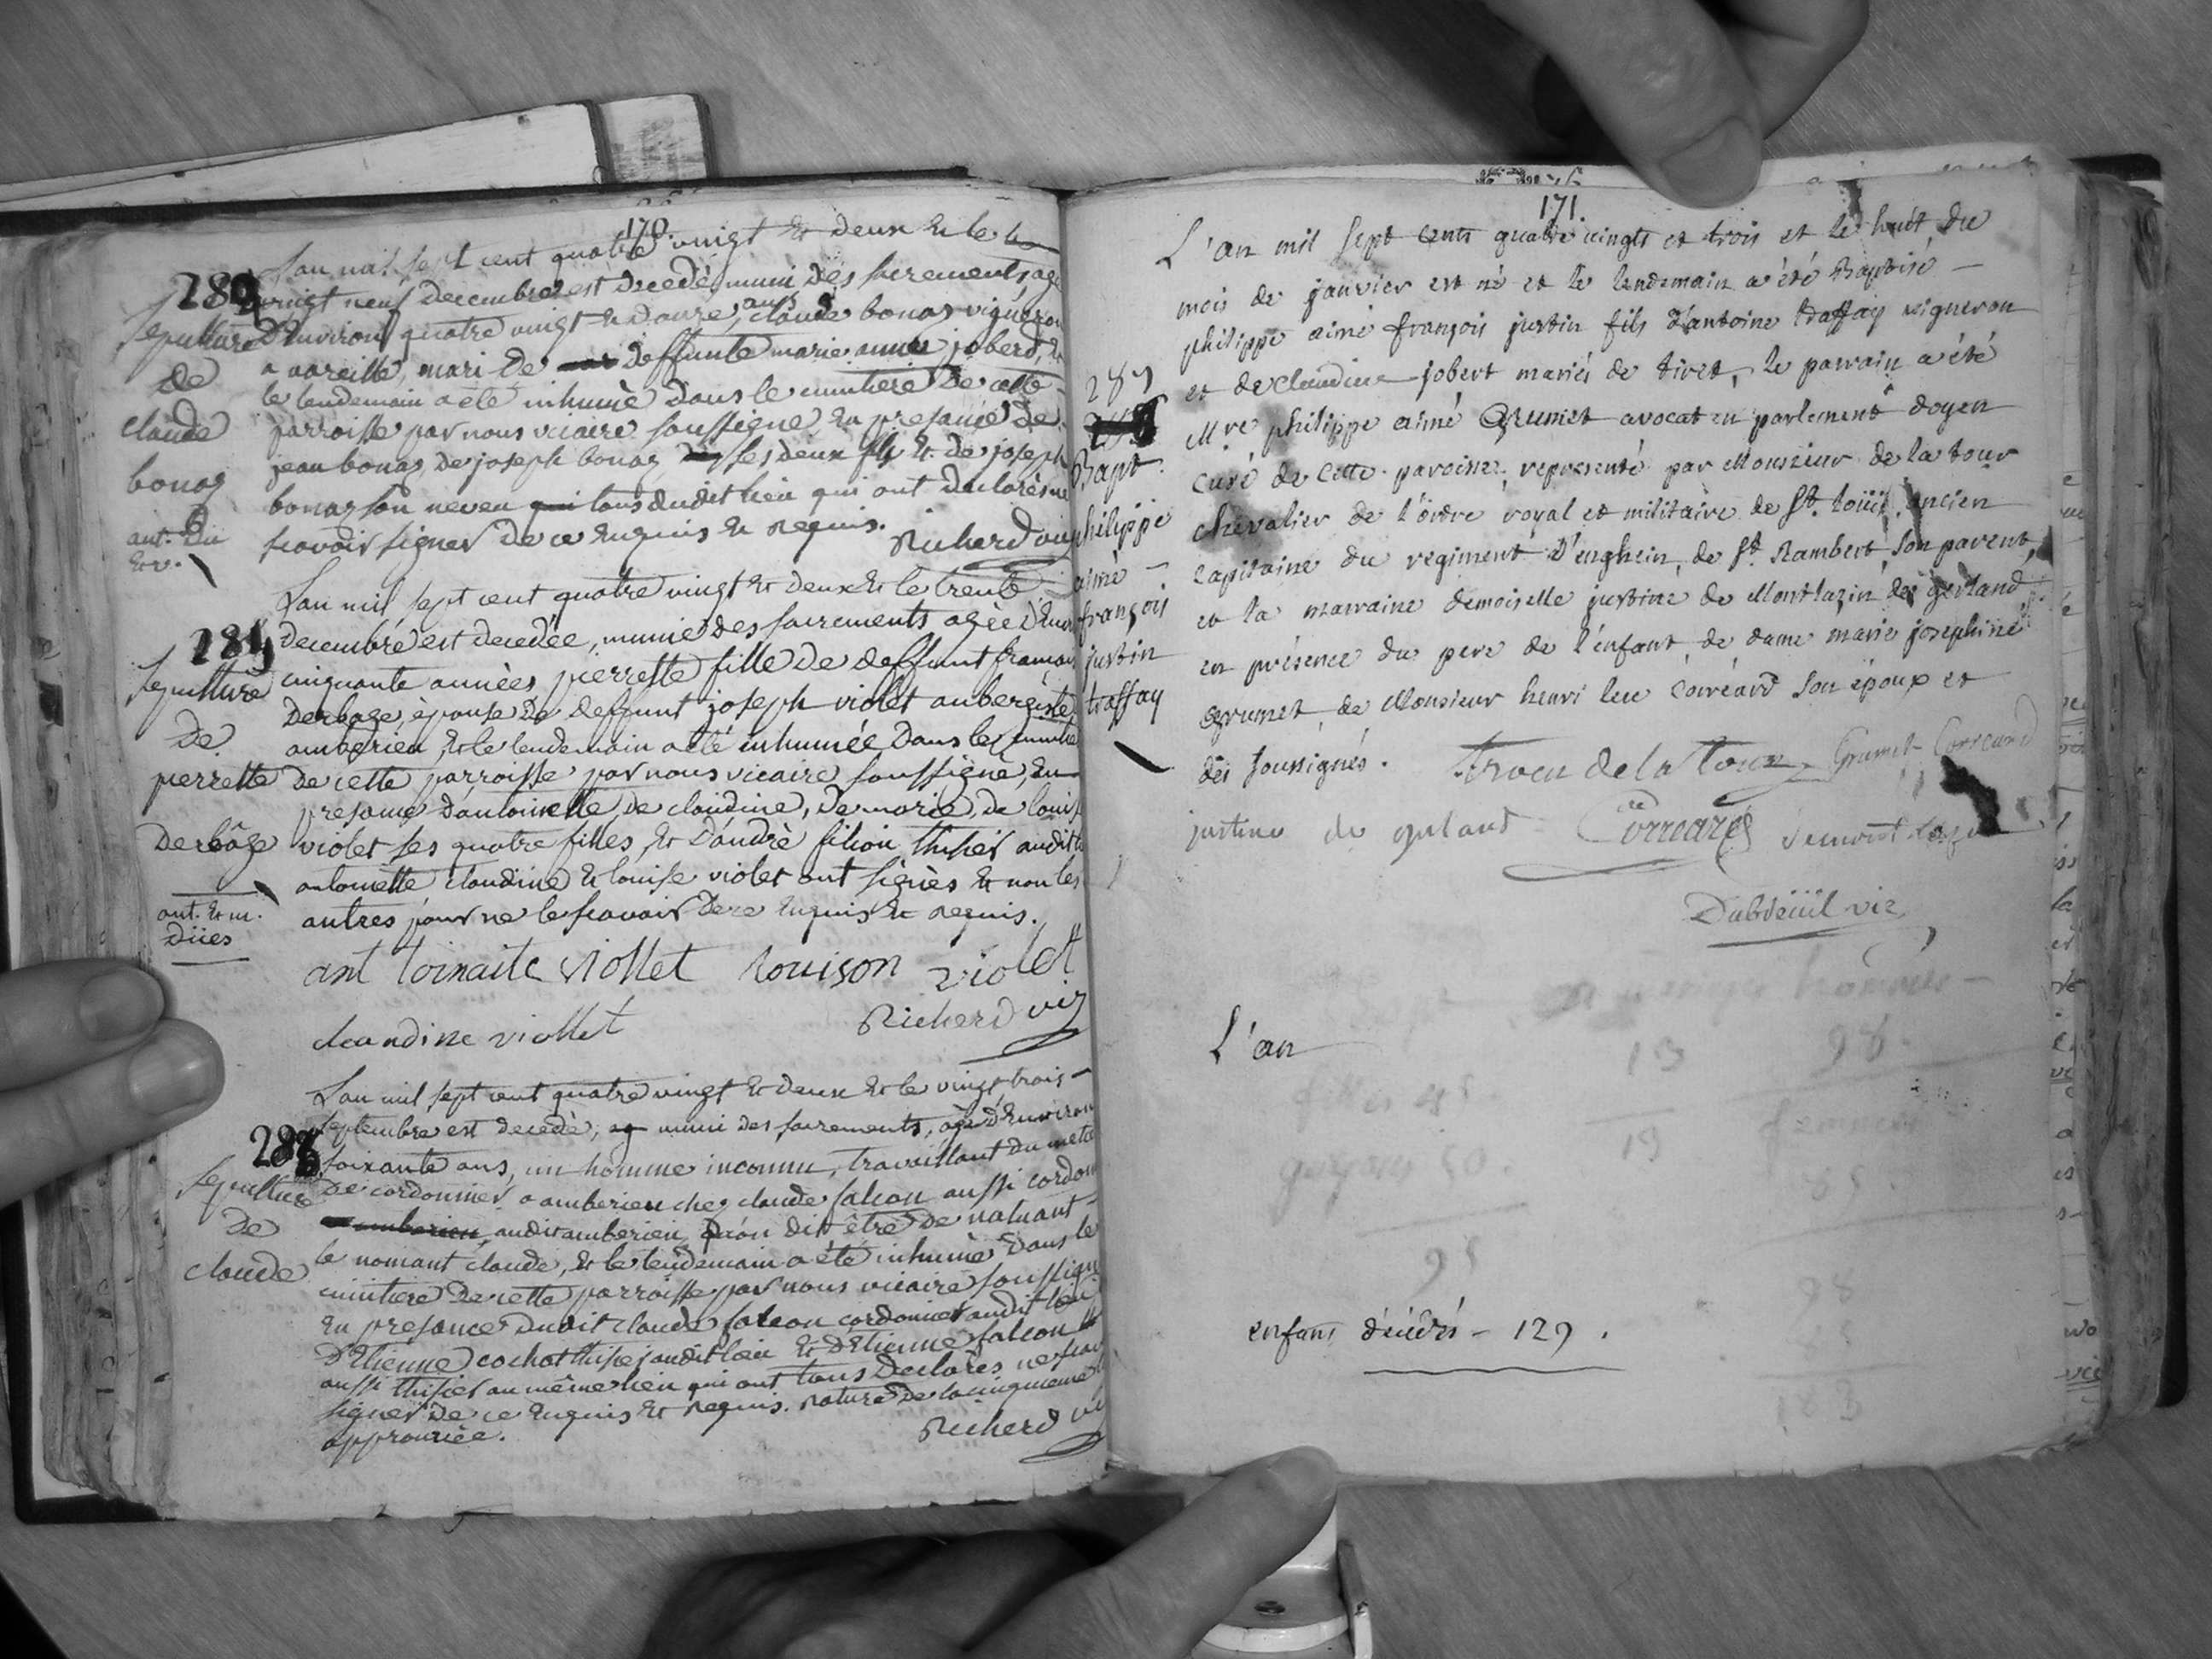 170.
L'an mil sept cent quatre vingt & deux & le
vingt neuf decembre est decedé, muni des sacrements, agé
d'environ quatre vingt & douze ans, claude bonaz vigneron
a vareille, mari de deffunte marie anne joberd, &
le lendemain a eté inhumé dans le cimitiere de cette
parroisse par nous vicaire soussigné en presance de
jean bonaz de joseph bonaz ses deux fils & de joseph
bonaz son neveu tous dudit lieu qui ont declarés ne
scavoir signer de ce enquis & requis. Richerd vic
Sepulture
de
claude
bonaz
ant. du
L'an mil sept cent quatre vingt & deux & le trente
decembre est decedée, munie des sacrements agée d'envi
cinquante années pierrette fille de deffunt françois
derbaze, épouse de deffunt joseph violet aubergiste
amberieu, & le lendemain a eté inhumée dans le cimitie
de cette parroisse par nous vicaire soussigné, en
presance d'antoinette, de claudine, de marie, de louise
violet ses quatre filles, & d'andrè filion thisier audit
antoinette claudine & louise violet ont signés & non les
autres pour ne le scavoir de ce enquis & requis.
284
Sepulture
de
pierrette
derbâze
ant. & m.
dües
ant toinaite viollet louison violet
claudine viollet Richerd vic
L'an mil sept cent quatre vingt & deux & le vingt trois
septembre est decedé, muni des sacrements, agé d'environ
soixante ans, un homme inconnu, travaillant du metie
de cordonnier a amberieu chez claude falcon aussi cordon
audit amberieu, qu'on dit être de natuant
le nomant claude, & le lendemain a eté inhumé dans le
cimitiere de cette parroisse par nous vicaire soussigné
en presance dudit claude falcon cordonier audit lieu
d'Etienne cochat thisier audit lieu & d'Etienne falcon
aussi thisier au même lieu qui ont tous declarés ne scav
signer de ce enquis & requis. rature de la cinquieme
approuvée. Richerd vic
Sepulture
de
claude
171.
L'an mil sept cents quatre vingts et trois et le huit du
mois de janvier est né et le lendemain a été Baptisé
philippe aimé françois justin fils d'antoine traffay vigneron
et de claudine jobert mariés de tiret, le parrain a été
Mre philippe aimé Grumet avocat en parlement doyen
curé de cette paroisse, representé par Monsieur de la tour
chevalier de l'ordre royal et militaire de St. loüis, ancien
capitaine du regiment d'enghein, de St. Rambert, son parent,
et la marraine demoiselle justine de Montlazin de gerland
en présence du pere de l'enfant, de dame marie josephine
grumet, de Monsieur henri luc corréard son époux et
des soussignés. de la Tour Grumet Correard
justine de gerland Correard
Dubreüil vic
287
Bapt.
philippe
aimé
françois
justin
traffay
L'an
enfans décédés - 129.